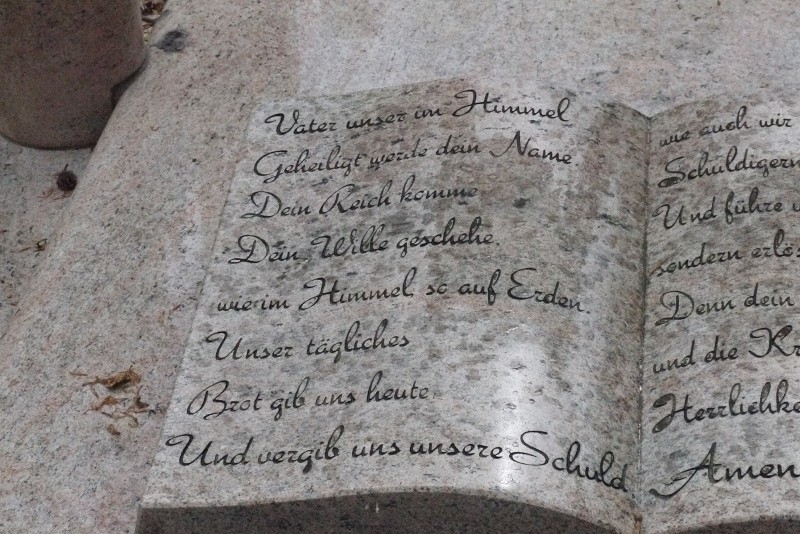 Vater unser im Himmel
Geheiligt werde dein Name.
Dein Reich komme
Dein Wille geschehe,
wie im Himmel, so auf Erden.
Unser tägliches
Brot gib uns heute,
Und vergib uns unsere Schuld
wie auch wir
Schuldigern
Und führe
sondern
Denn dein
und die
Amen